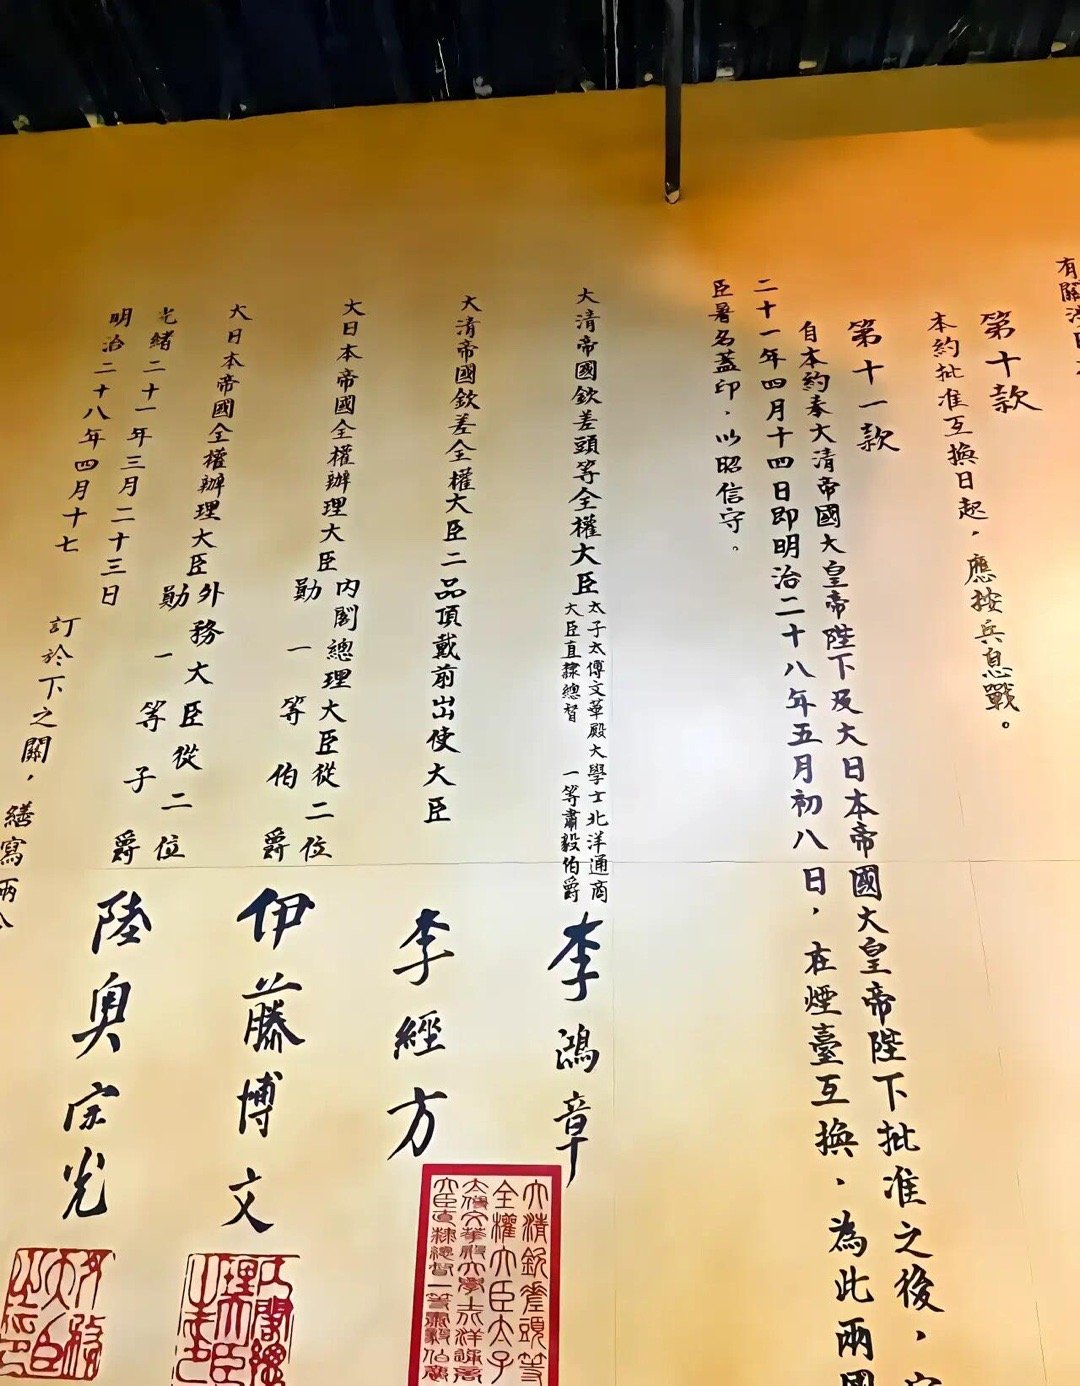 有關
第十款
本約批准互換日起，應按兵息戰。
第十一款
自本約奉大清帝國大皇帝陛下及大日本帝國大皇帝陛下批准之後，定
二十一年四月十四日即明治二十八年五月初八日，在煙臺互換．為此兩國
臣署名蓋印．以昭信守。
大清帝國欽差頭等全權大臣
太子太傅文華殿大學士北洋通商
大臣直隸總督 一等肅毅伯爵
李鴻章
大清帝國欽差全權大臣二品頂戴前出使大臣
李經方
大日本帝國全權辦理大臣
內閣總理大臣從二位
勛一等伯爵
伊藤博文
大日本帝國全權辦理大臣
外務大臣從二位
勛一等子爵
陸奧宗光
光緒二十一年三月二十三日
明治二十八年四月十七
訂於下之關，繕寫兩
大清欽差頭等
全權大臣太子
太傅文華殿大學士北洋通商
大臣直隸總督一等肅毅伯爵
內閣總
理大臣
外務
大臣
之印